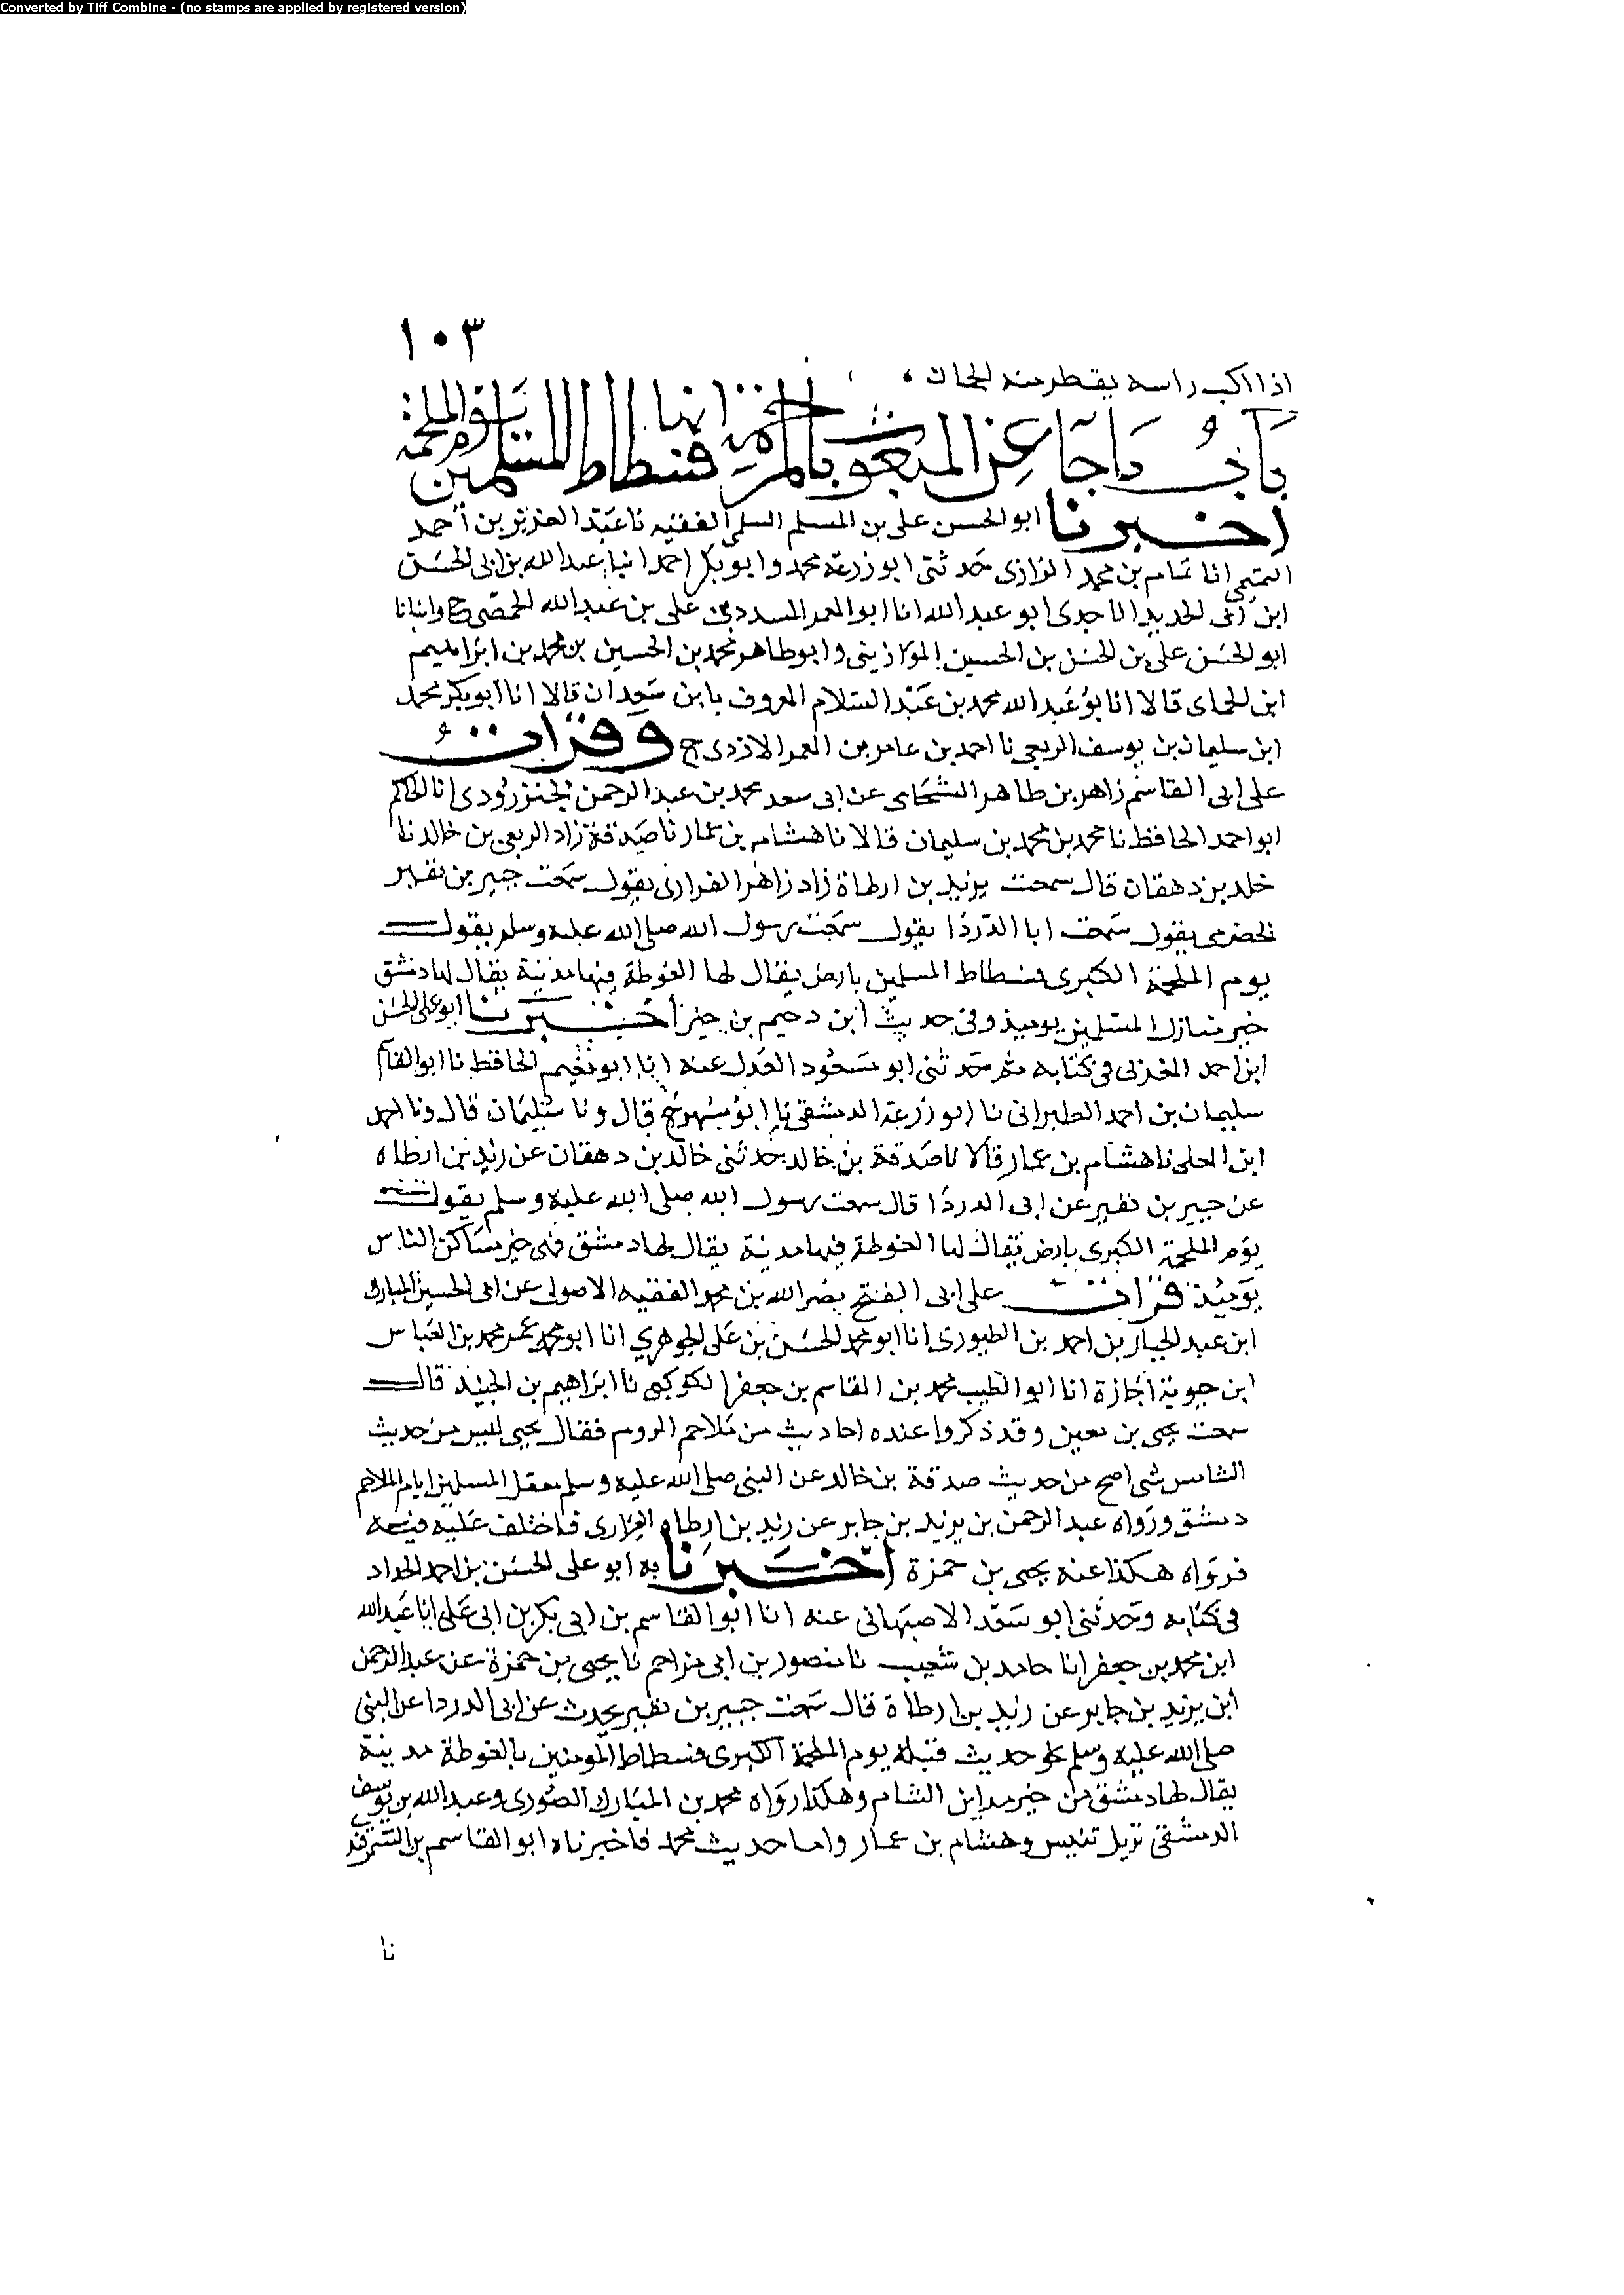 Converted by Tiff Combine - (no stamps are applied by registered version)
١٠٣
اذا اكب راسه يقطر منه الجمان
باب ما جا عن المبعوث بالمرحمة انها فسطاط المسلمين يوم الملحمة
اخبرنا ابو الحسن على بن المسلم السلمى الفقيه نا عبد العزيز بن احمد
التميمى انا تمام بن محمد الرازى حدثنى ابو زرعة محمد وابو بكر احمد انبا عبد الله بن ابى الحسن
ابن ابى الحديد انا جدى ابو عبد الله انا ابو المعمر المسدد بن على بن عبد الله الحمصى ح وانبانا
ابو الحسن على بن الحسن بن الحسين الموازينى وابو طاهر محمد بن الحسين بن محمد بن ابراهيم
ابن الحناى قالا انا ابو عبد الله محمد بن عبد السلام المعروف بابن سعدان قالا انا ابو بكر محمد
ابن سليمان بن يوسف الربعى نا احمد بن عامر بن المعمر الازدى ح وقرات
على ابى القاسم زاهر بن طاهر الشحامى عن ابى سعد محمد بن عبد الرحمن الجنزرودى انا الحاكم
ابو احمد الحافظ نا محمد بن محمد بن سليمان قالا نا هشام بن عمار نا صدقة زاد الربعى بن خالد نا
خلد بن دهقان قال سمعت يزيد بن ارطاة زاد زاهر الفزارى يقول سمعت جبير بن نفير
الحضرمى يقول سمعت ابا الدردا يقول سمعت رسول الله صلى الله عليه وسلم يقول
يوم الملحمة الكبرى فسطاط المسلمين بارض يقال لها الغوطة فيها مدينة يقال لها دمشق
خير منازل المسلمين يوميذ وفى حديث ابن دحيم بن خير اخبرنا ابو على الحسن
ابن احمد المقرى فى كتابه ثم حدثنى ابو مسعود العدل عنه انا ابو نعيم الحافظ نا ابو القاسم
سليمان بن احمد الطبرانى نا ابو زرعة الدمشقى نا ابو مسهر ح قال ونا سليمان قال ونا احمد
ابن المعلى نا هشام بن عمار قالا نا صدقة بن خالد حدثنى خالد بن دهقان عن زيد بن ارطاه
عن جبير بن نفير عن ابى الدردا قال سمعت رسول الله صلى الله عليه وسلم يقول
يوم الملحمة الكبرى بارض يقال لها الغوطة فيها مدينة يقال لها دمشق فهى خير مساكن الناس
يوميذ قرات على ابى الفتح نصر الله بن محمد الفقيه الاصولى عن ابى الحسين المبارك
ابن عبد الجبار بن احمد بن الطيورى انا ابو محمد الحسن بن على الجوهرى انا ابو محمد عمر محمد بن العباس
ابن حيوية اجازة انا ابو الطيب محمد بن القاسم بن جعفر الكوكبى نا ابراهيم بن الجنيد قال
سمعت يحيى بن معين وقد ذكروا عنده احاديث من ملاحم الروم فقال يحيى ليس من حديث
الشامين شى اصح من حديث صدقة بن خالد عن النبى صلى الله عليه وسلم معقل المسلمين ايام الملاحم
دمشق ورواه عبد الرحمن بن يزيد بن جابر عن زيد بن ارطاه الفزارى فاختلف عليه فيه
فرواه هكذا عنه يحيى بن حمزة اخبرنا به ابو على الحسن بن احمد الحداد
فى كتابه وحدثنى ابو سعد الاصبهانى عنه انا ابو القاسم بن ابى بكر بن ابى على انا عبد الله
ابن محمد بن جعفر انا حامد بن شعيب نا منصور بن ابى مزاحم نا يحيى بن حمزة عن عبد الرحمن
ابن يزيد بن جابر عن زيد بن ارطاة قال سمعت جبير بن نفير يحدث عن ابى الدردا عن النبى
صلى الله عليه وسلم نحو حديث قبله يوم الملحمة الكبرى فسطاط المومنين بالغوطة مدينة
يقال لها دمشق من خير مداين الشام وهكذا رواه محمد بن المبارك الصورى وعبد الله بن يوسف
الدمشقى نزيل تنيس وهشام بن عمار واما حديث محمد فاخبرناه ابو القاسم بن السمرقندى
نا